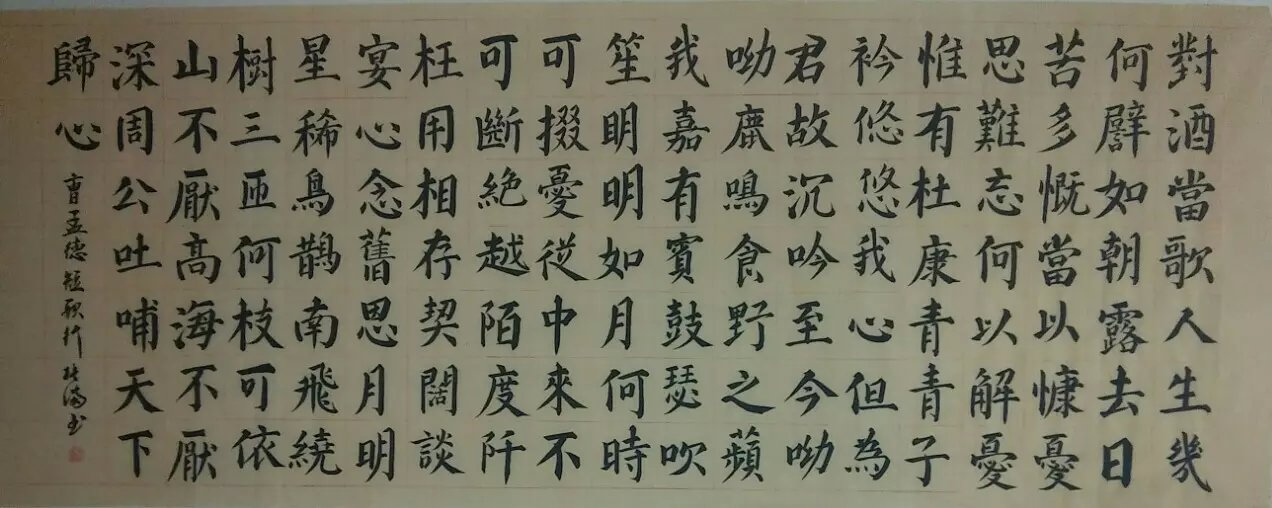 對酒當歌人生幾
何譬如朝露去日
苦多慨當以慷憂
思難忘何以解憂
惟有杜康青青子
衿悠悠我心但為
君故沉吟至今呦
呦鹿鳴食野之蘋
我嘉有賓鼓瑟吹
笙明明如月何時
可掇憂從中來不
可斷絕越陌度阡
枉用相存契闊談
宴心念舊思月明
星稀鳥鵲南飛繞
樹三匝何枝可依
山不厭高海不厭
深周公吐哺天下
歸心
曹孟德短歌行 书